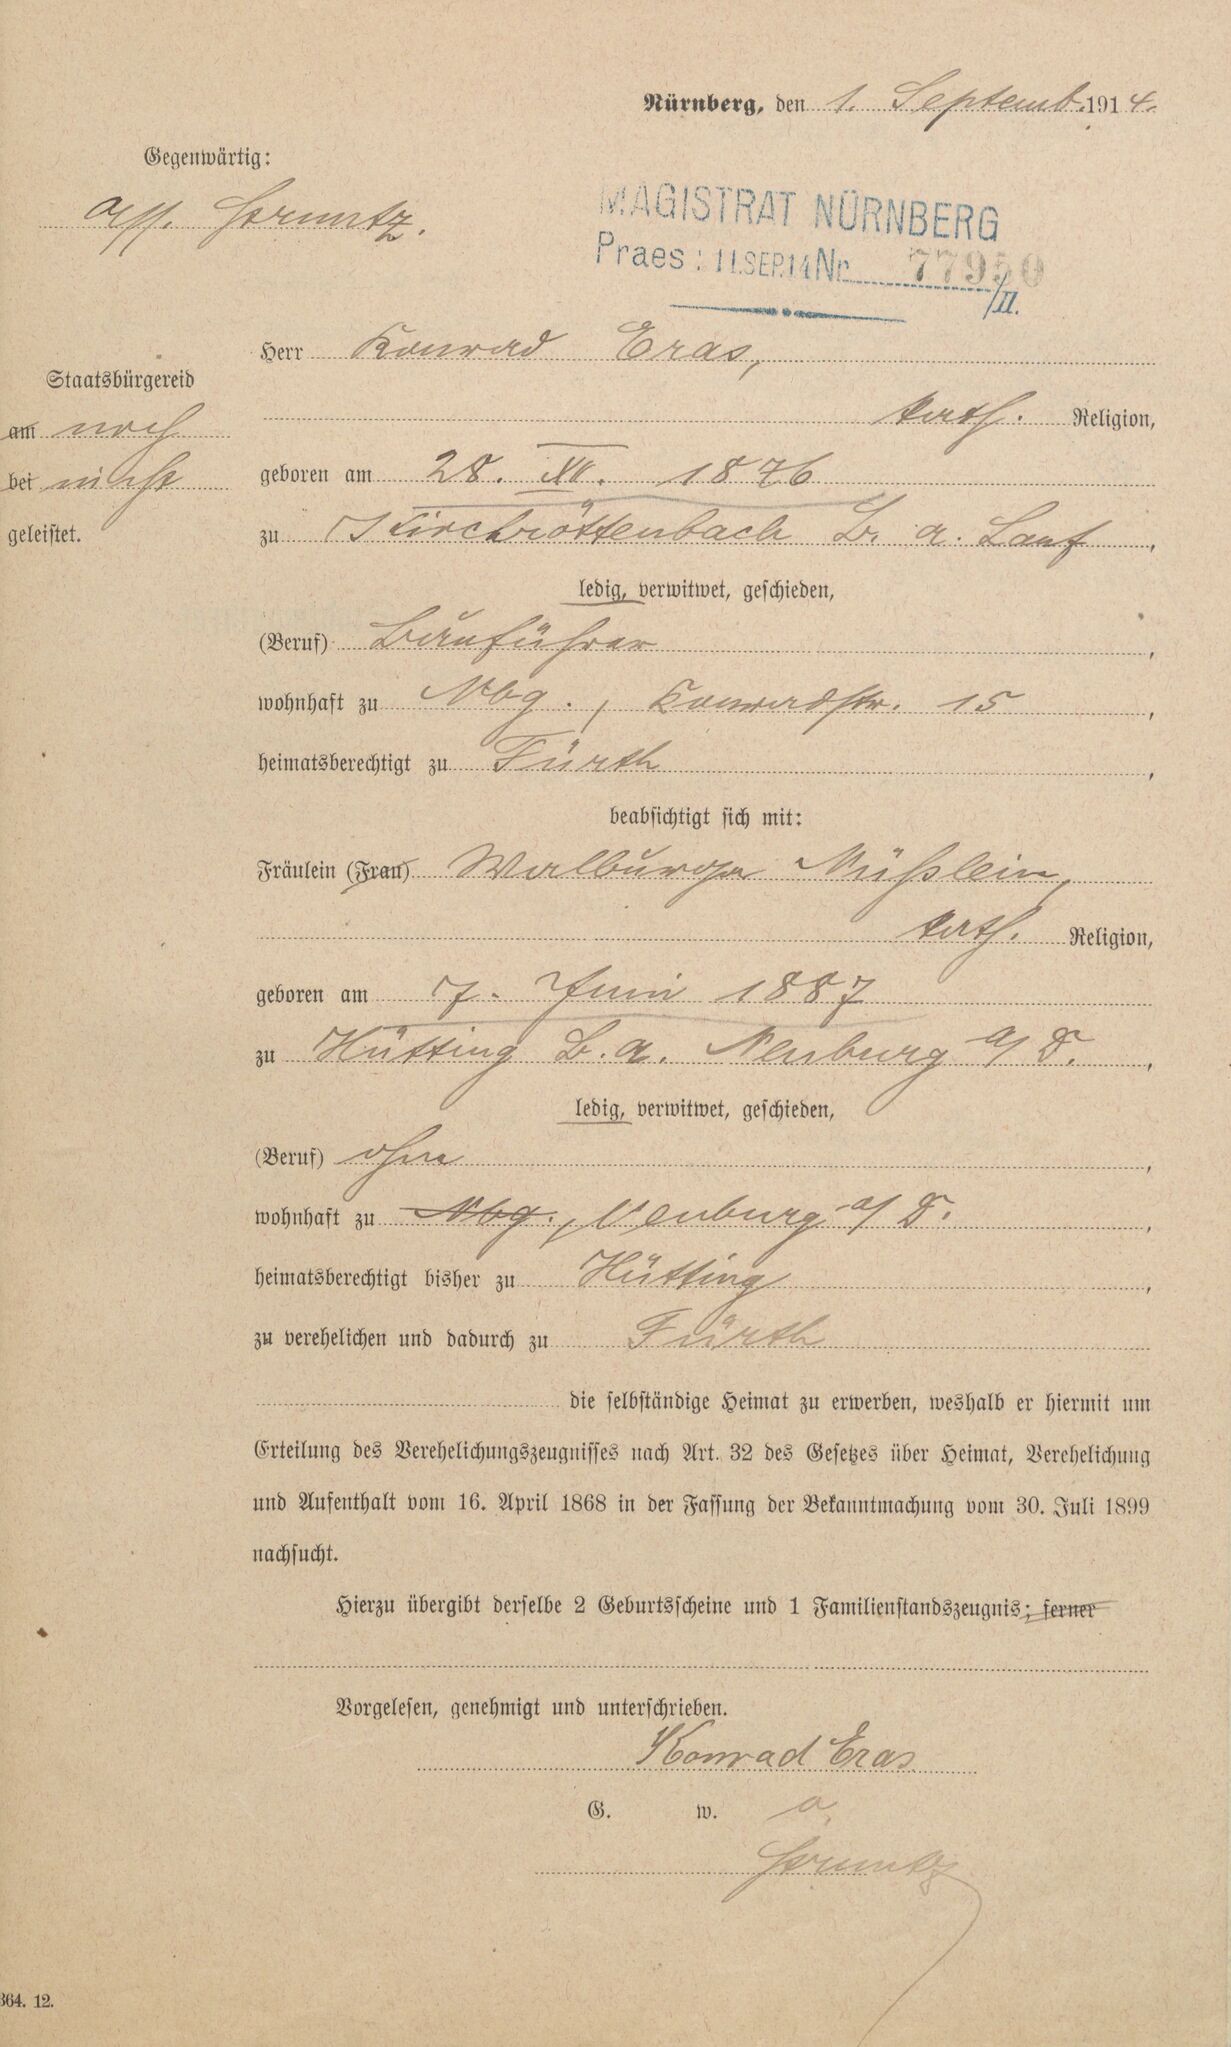 Nürnberg, den 1. Septemb. 1914.
Gegenwärtig:
Ass.
MAGISTRAT NÜRNBERG
Praes: 11.SEP.14 Nr. 77950
/II.
Herr Konrad Eras,
Staatsbürgereid
am noch
bei nicht
geleistet.
kath. Religion,
geboren am 28. XI. 1876
zu Kirchröttenbach B. a. Lauf,
ledig, verwitwet, geschieden,
(Beruf) Bauführer,
wohnhaft zu Nbg., Konradstr. 15,
heimatsberechtigt zu Fürth,
beabsichtigt sich mit:
Fräulein (Frau) Walburga Nüßlein,
kath. Religion,
geboren am 7. Juni 1887
zu Hütting B. a. Neuburg a/D.,
ledig, verwitwet, geschieden,
(Beruf) ohne,
wohnhaft zu Nbg., Neuburg a/D.,
heimatsberechtigt bisher zu Hütting,
zu verehelichen und dadurch zu Fürth
die selbständige Heimat zu erwerben, weshalb er hiermit um
Erteilung des Verehelichungszeugnisses nach Art. 32 des Gesetzes über Heimat, Verehelichung
und Aufenthalt vom 16. April 1868 in der Fassung der Bekanntmachung vom 30. Juli 1899
nachsucht.
Hierzu übergibt derselbe 2 Geburtsscheine und 1 Familienstandszeugnis; ferner
Vorgelesen, genehmigt und unterschrieben.
Konrad Eras
G. w. o.
364. 12.